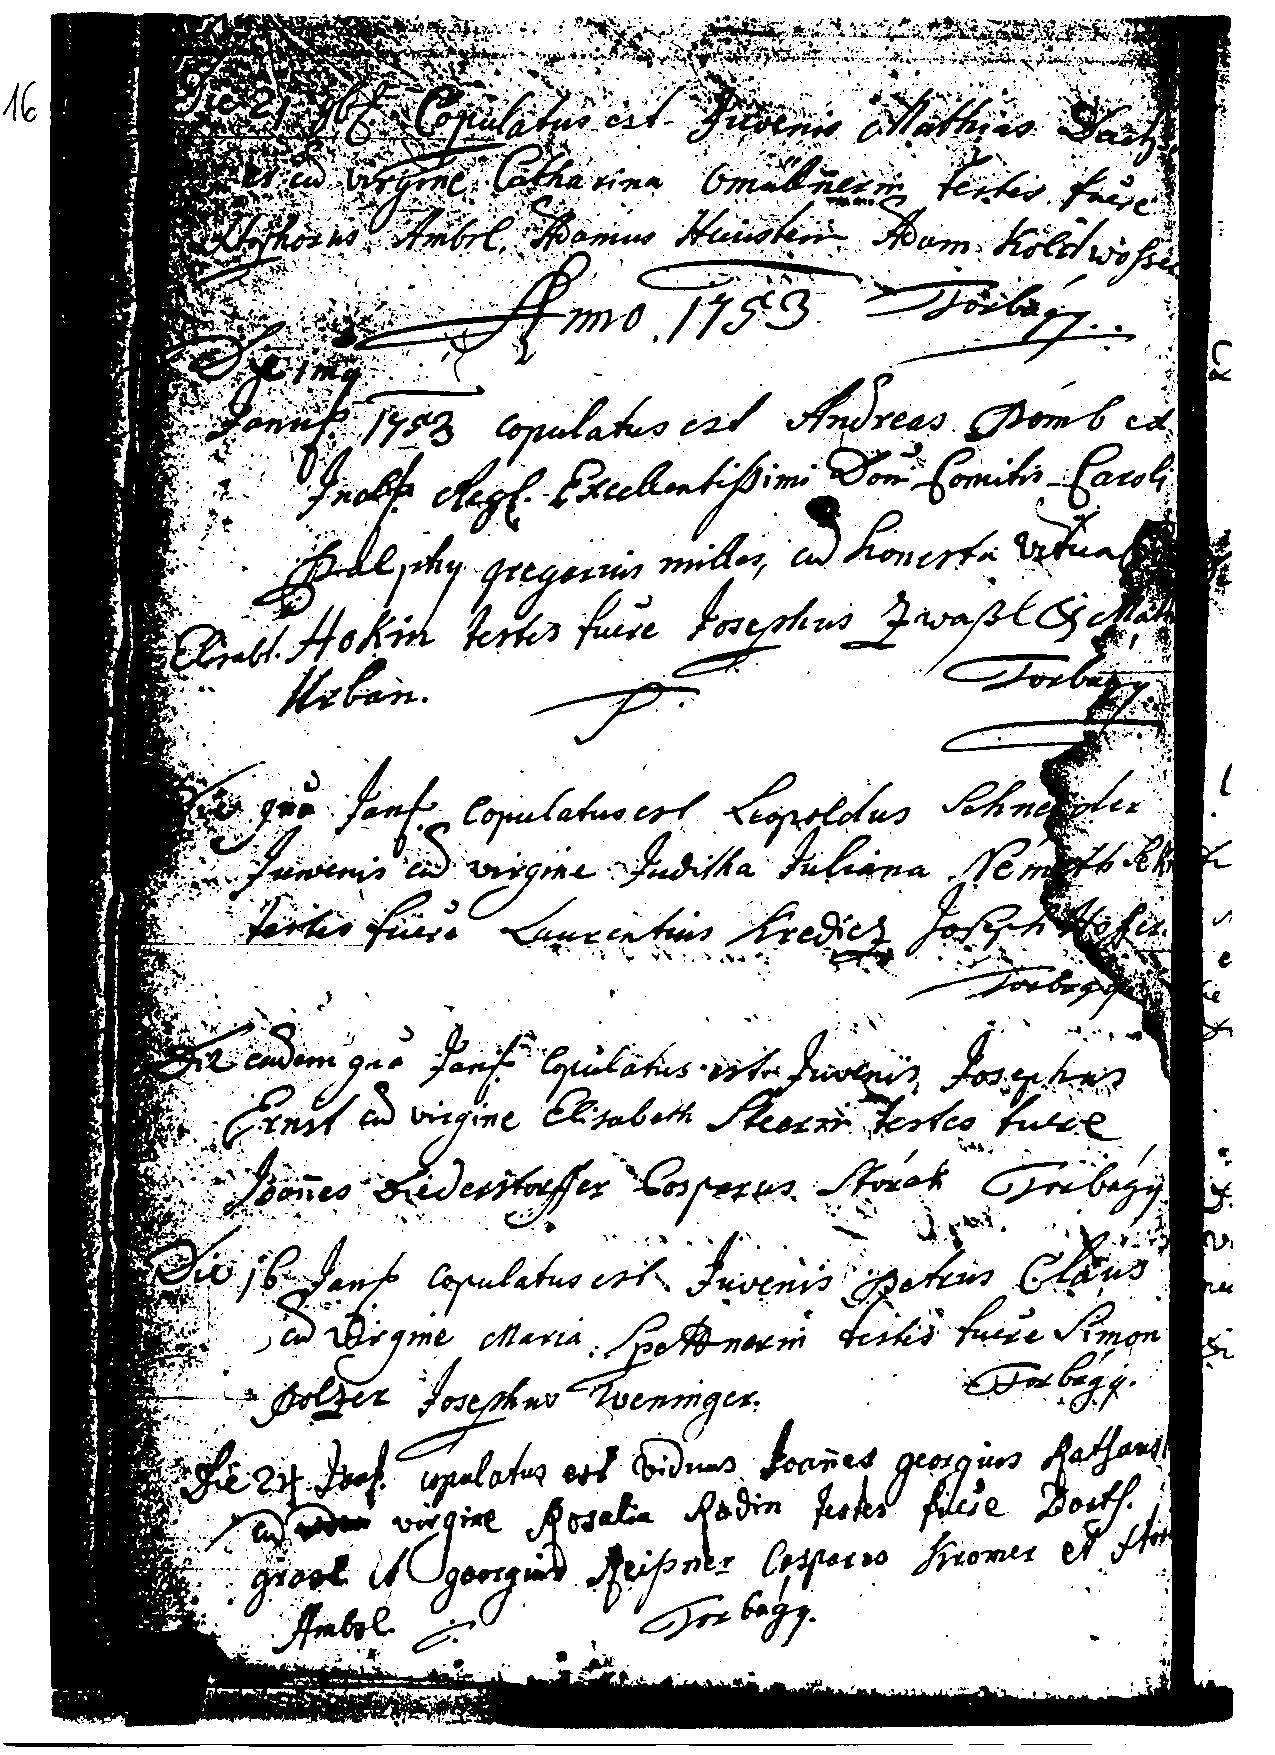 16
Die 21 9bř. Copulatus est Juvenis Mathias Dach
er cu virgine Catharina testes fuere
Ambrl. Adamus Adam Koldwosser
Anno 1753 Torbágy.
Die ima
Januř 1753 copulatus est Andreas Pomb ex
Regi. Excellentissimi Dom Comitis Caroli
Palphy gregarius milles, cu honesta vidua
Elisabt. Hokin testes fuere Josephus Zwaßl & Math
Urban. Torbágy.
Die 9na Janř. Copulatus est Leopoldus Schneider
Juvenis cu virgine Juditha Juliana Nemeth
testes fuere Laurentius Krediez Joseph Hoffer.
Torbagy
Die eadem 9na Janř Copulatus est Juvenis Josephus
Ernst cu virgine Elisabeth Steerin testes fuere
Joañes Liederstorffer Casparus Storak Torbágy
Die 16 Janř copulatus est Juvenis petrus Claus
cu Virgine Maria testes fuere Simon
Polzer Josephus Weninger. Torbágy.
Die 24 Janř. copulatus est viduus Joañes georgius
cu virgine Rosalia Rodin testes fuere Barth.
et georgius Reißner Casparus Kromer et
Ambrl. Torbágy.